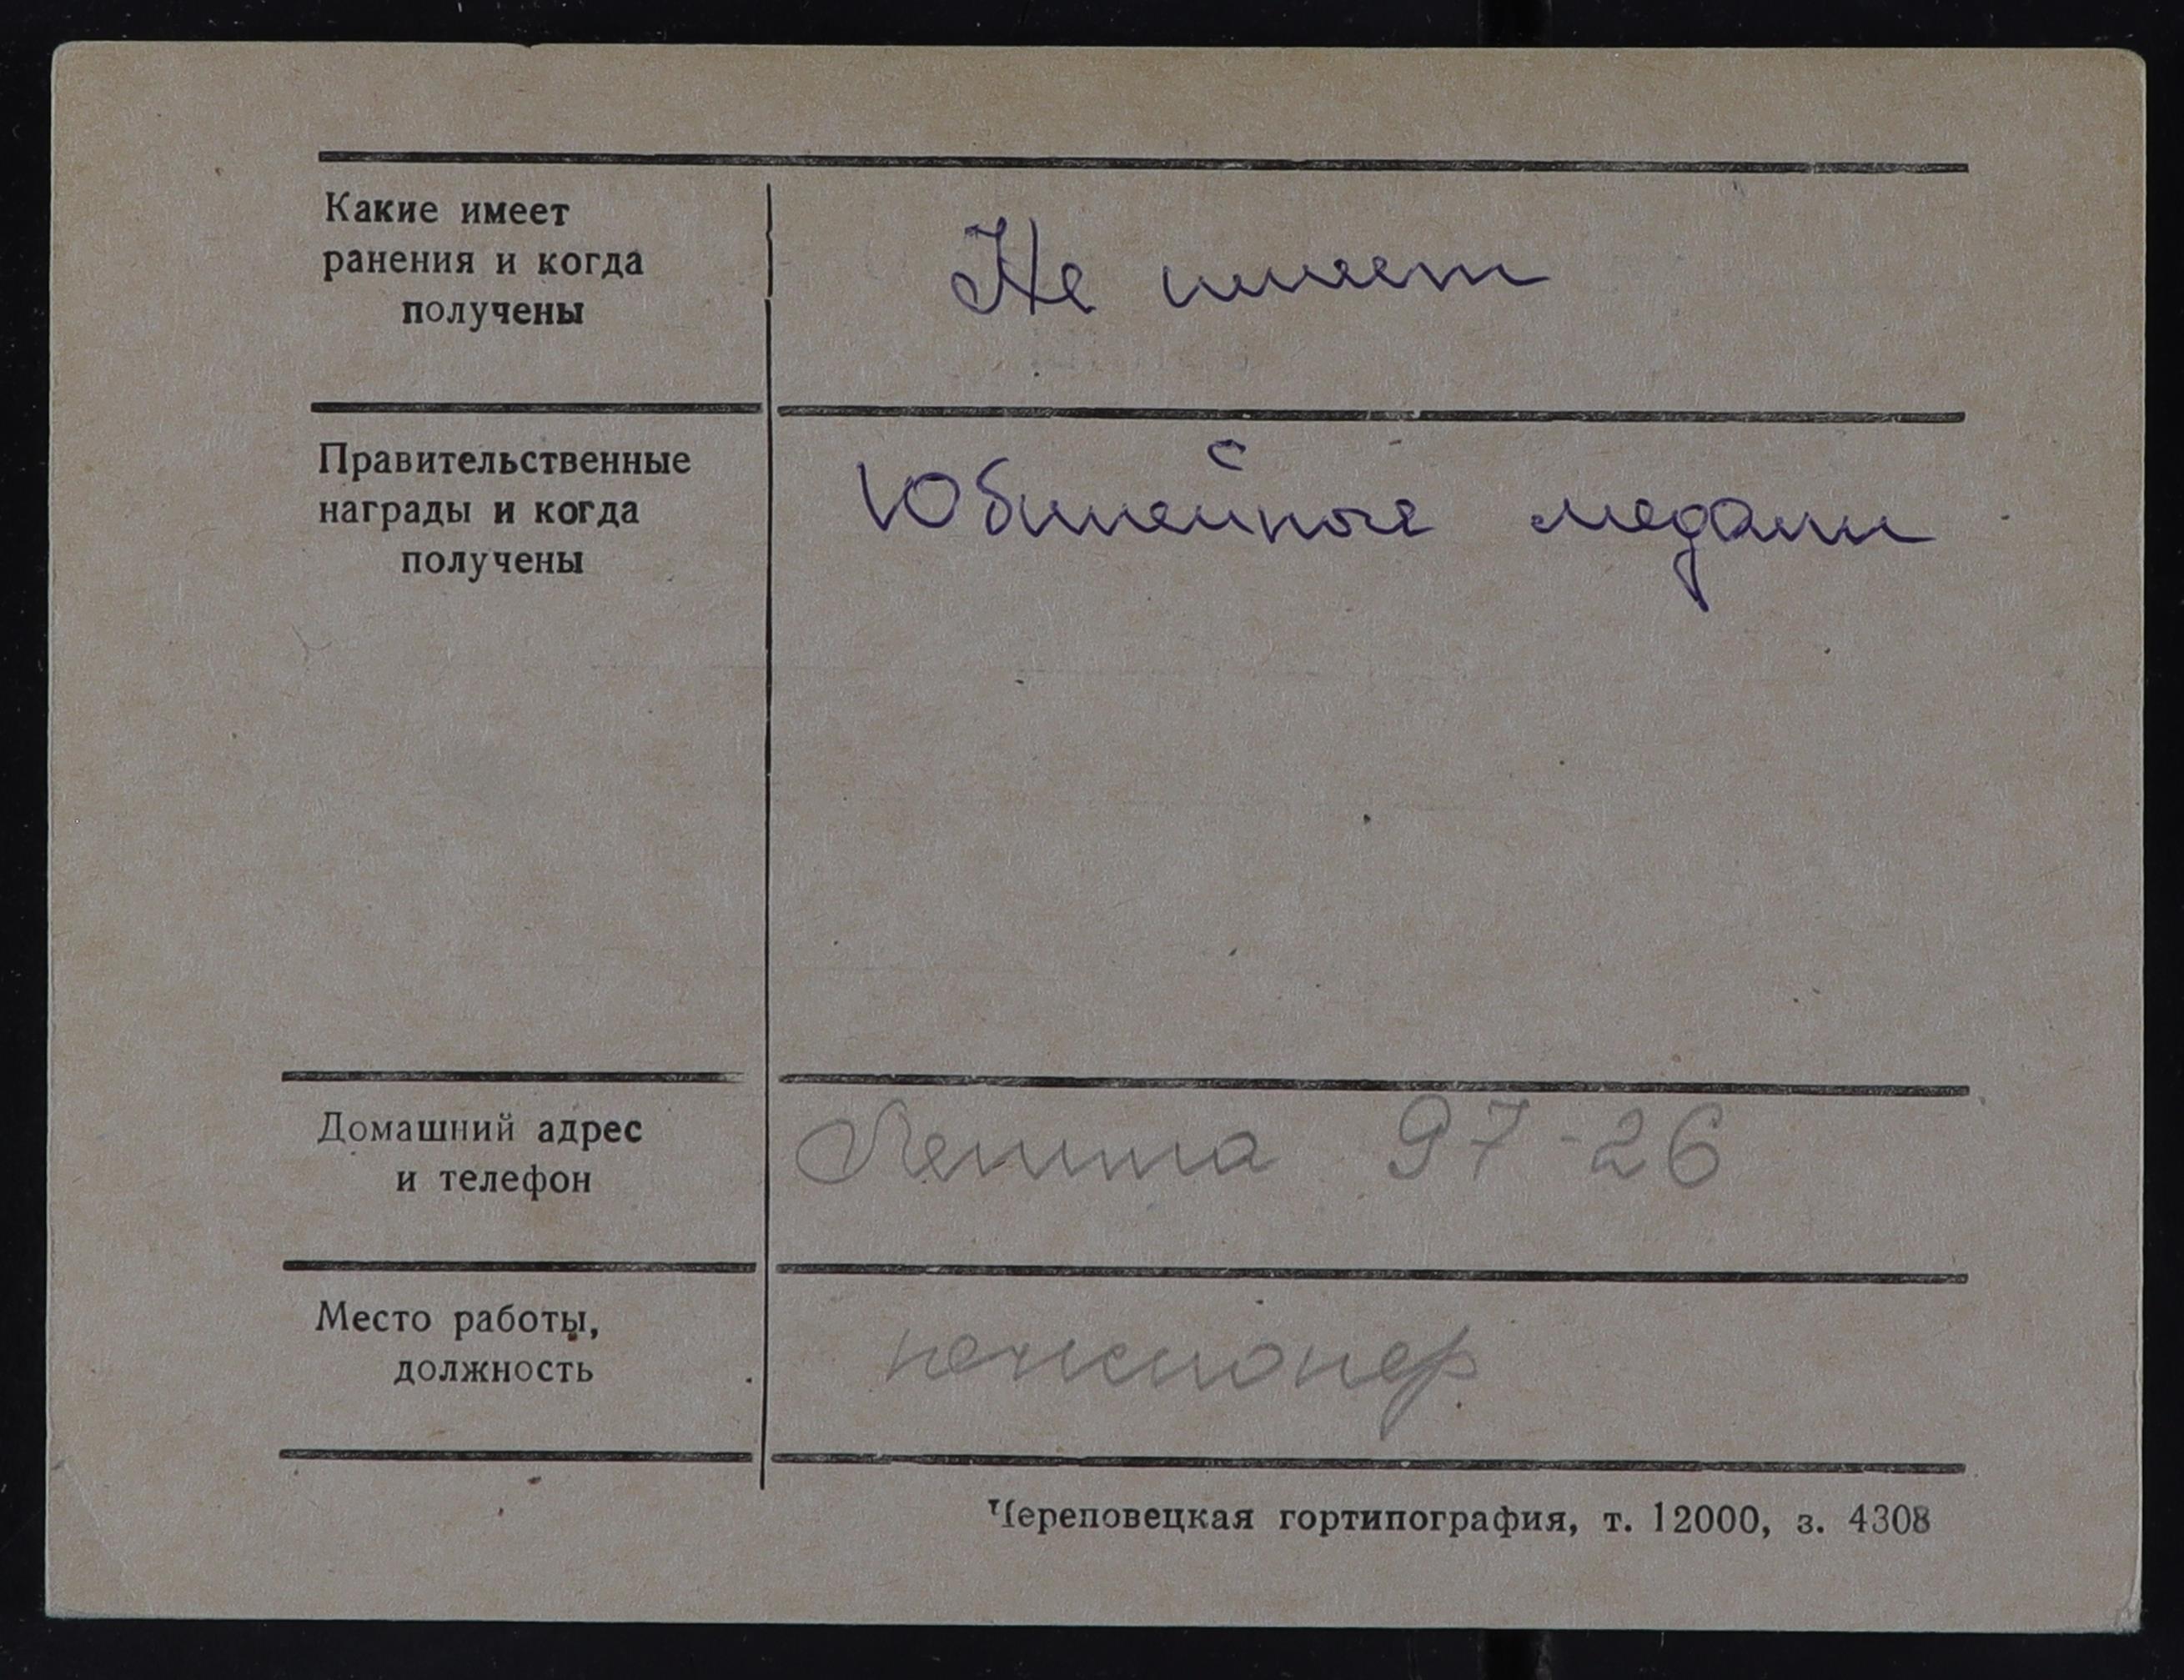 Какие имеет
ранения и когда
получены
Не имеет
Правительственные
награды и когда
получены
Юбилейные медали
Домашний адрес
и телефон
Ленина 97-26
Место работы,
должность
пенсионер
Череповецкая гортипография, т. 12000, з. 4308